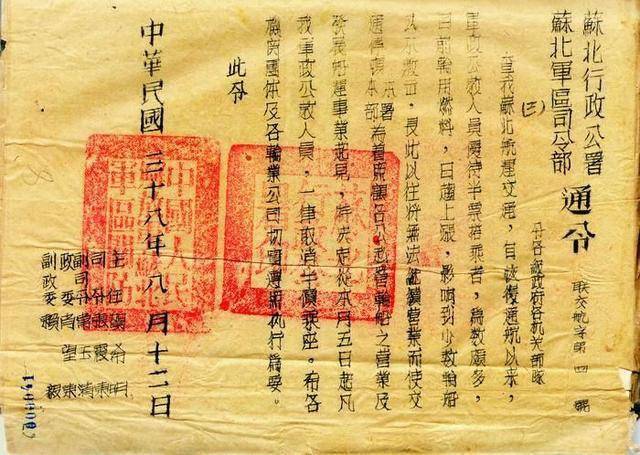 蘇北行政公署
蘇北軍區司令部
通令
聯交航字第四號
(三)
各級政府各机关部隊
查我蘇北航運交通,自恢復通航以来,
軍政公教人員優待半票搭乘者,為數頗多,
目前輪用燃料,日趨上漲,影响到少數輪船
入不敷出,長此以往將無法繼續營業而使交
通停頓本署本部為着照顧各公私營輪船之營業及
發展船運事業起見,特决定從本月五日起凡
我軍政公教人員,一律取消半價乘座。希各
機関團体及各輪業公司切實遵照執行為要。
此令
主任 賀希明
司令 張震東
副司令 常玉清
政委 肖望東
副政委 賴毅
中華民國三十八年八月十二日